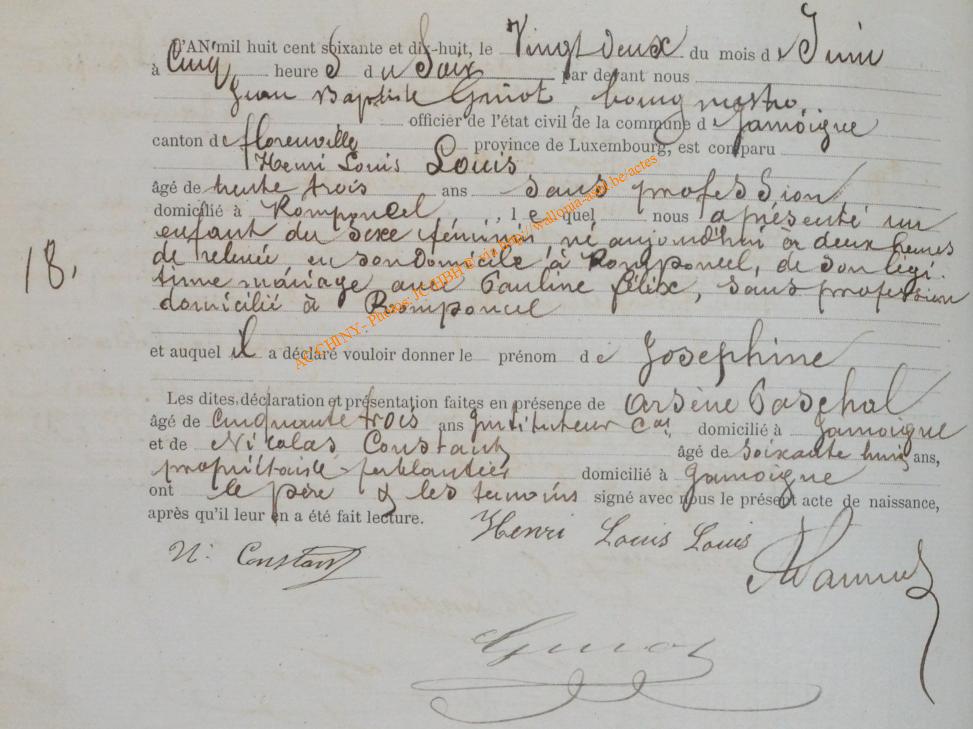 L'AN mil huit cent soixante et dix-huit, le Vingt deux du mois de Juin
à Cinq heures du Soir par devant nous
Jean Baptiste Guiot, bourgmestre,
officier de l'état civil de la commune de Jamoigne
canton de florenville province de Luxembourg, est comparu
Henri Louis Louis
âgé de trente trois ans sans profession
domicilié à Romponcel, lequel nous a présenté un
enfant du sexe féminin, né aujourd'hui à deux heures
de relevée en son domicile à Romponcel, de son légi-
time mariage avec Pauline félix, sans profession
domicilié à Romponcel
18.
et auquel il a déclaré vouloir donner le prénom de Joséphine
Les dites déclaration et présentation faites en présence de Arsène Paschal
âgé de cinquante trois ans Instituteur Cal, domicilié à Jamoigne
et de Nicolas Constant âgé de soixante huit ans,
propriétaire ferblantier domicilié à Jamoigne
ont le père & les temoins signé avec nous le présent acte de naissance,
après qu'il leur en a été fait lecture.
Henri Louis Louis
N. Constant
Guiot
AC CHINY - Photos: JCHIBH E via http://wallonia-asbl.be/actes